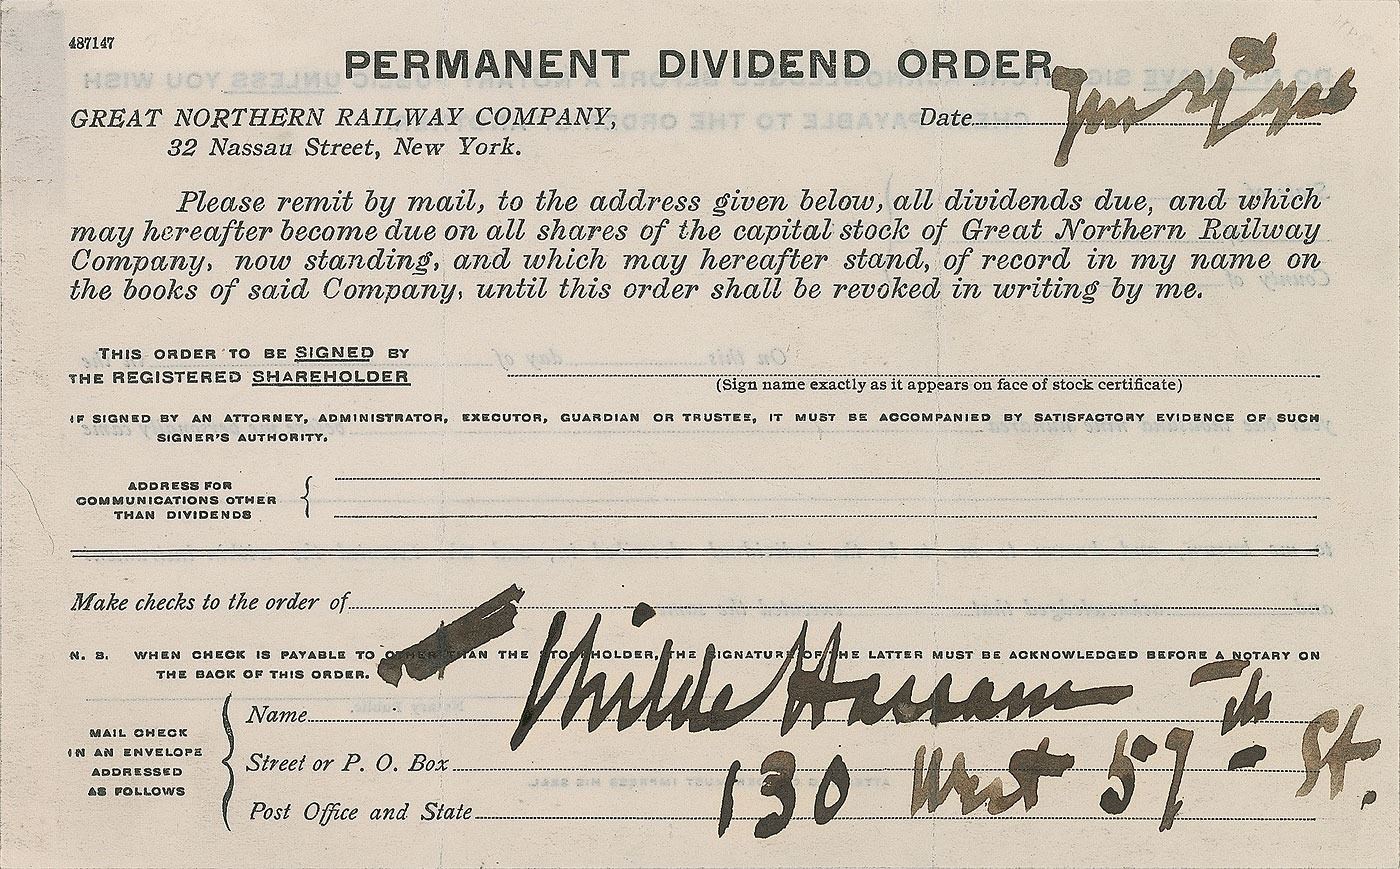 487147
PERMANENT DIVIDEND ORDER
GREAT NORTHERN RAILWAY COMPANY,
Date
32 Nassau Street, New York.
Please remit by mail, to the address given below, all dividends due, and which
may hereafter become due on all shares of the capital stock of Great Northern Railway
Company, now standing, and which may hereafter stand, of record in my name on
the books of said Company, until this order shall be revoked in writing by me.
THIS ORDER TO BE SIGNED BY
THE REGISTERED SHAREHOLDER
(Sign name exactly as it appears on face of stock certificate)
IF SIGNED BY AN ATTORNEY, ADMINISTRATOR, EXECUTOR, GUARDIAN OR TRUSTEE, IT MUST BE ACCOMPANIED BY SATISFACTORY EVIDENCE OF SUCH
SIGNER'S AUTHORITY.
ADDRESS FOR
COMMUNICATIONS OTHER
THAN DIVIDENDS
Make checks to the order of
N. B. WHEN CHECK IS PAYABLE TO OTHER THAN THE STOCKHOLDER, THE SIGNATURE OF THE LATTER MUST BE ACKNOWLEDGED BEFORE A NOTARY ON
THE BACK OF THIS ORDER.
MAIL CHECK
IN AN ENVELOPE
ADDRESSED
AS FOLLOWS
Name Childe Hassam
Street or P. O. Box 130 West 57th St.
Post Office and State